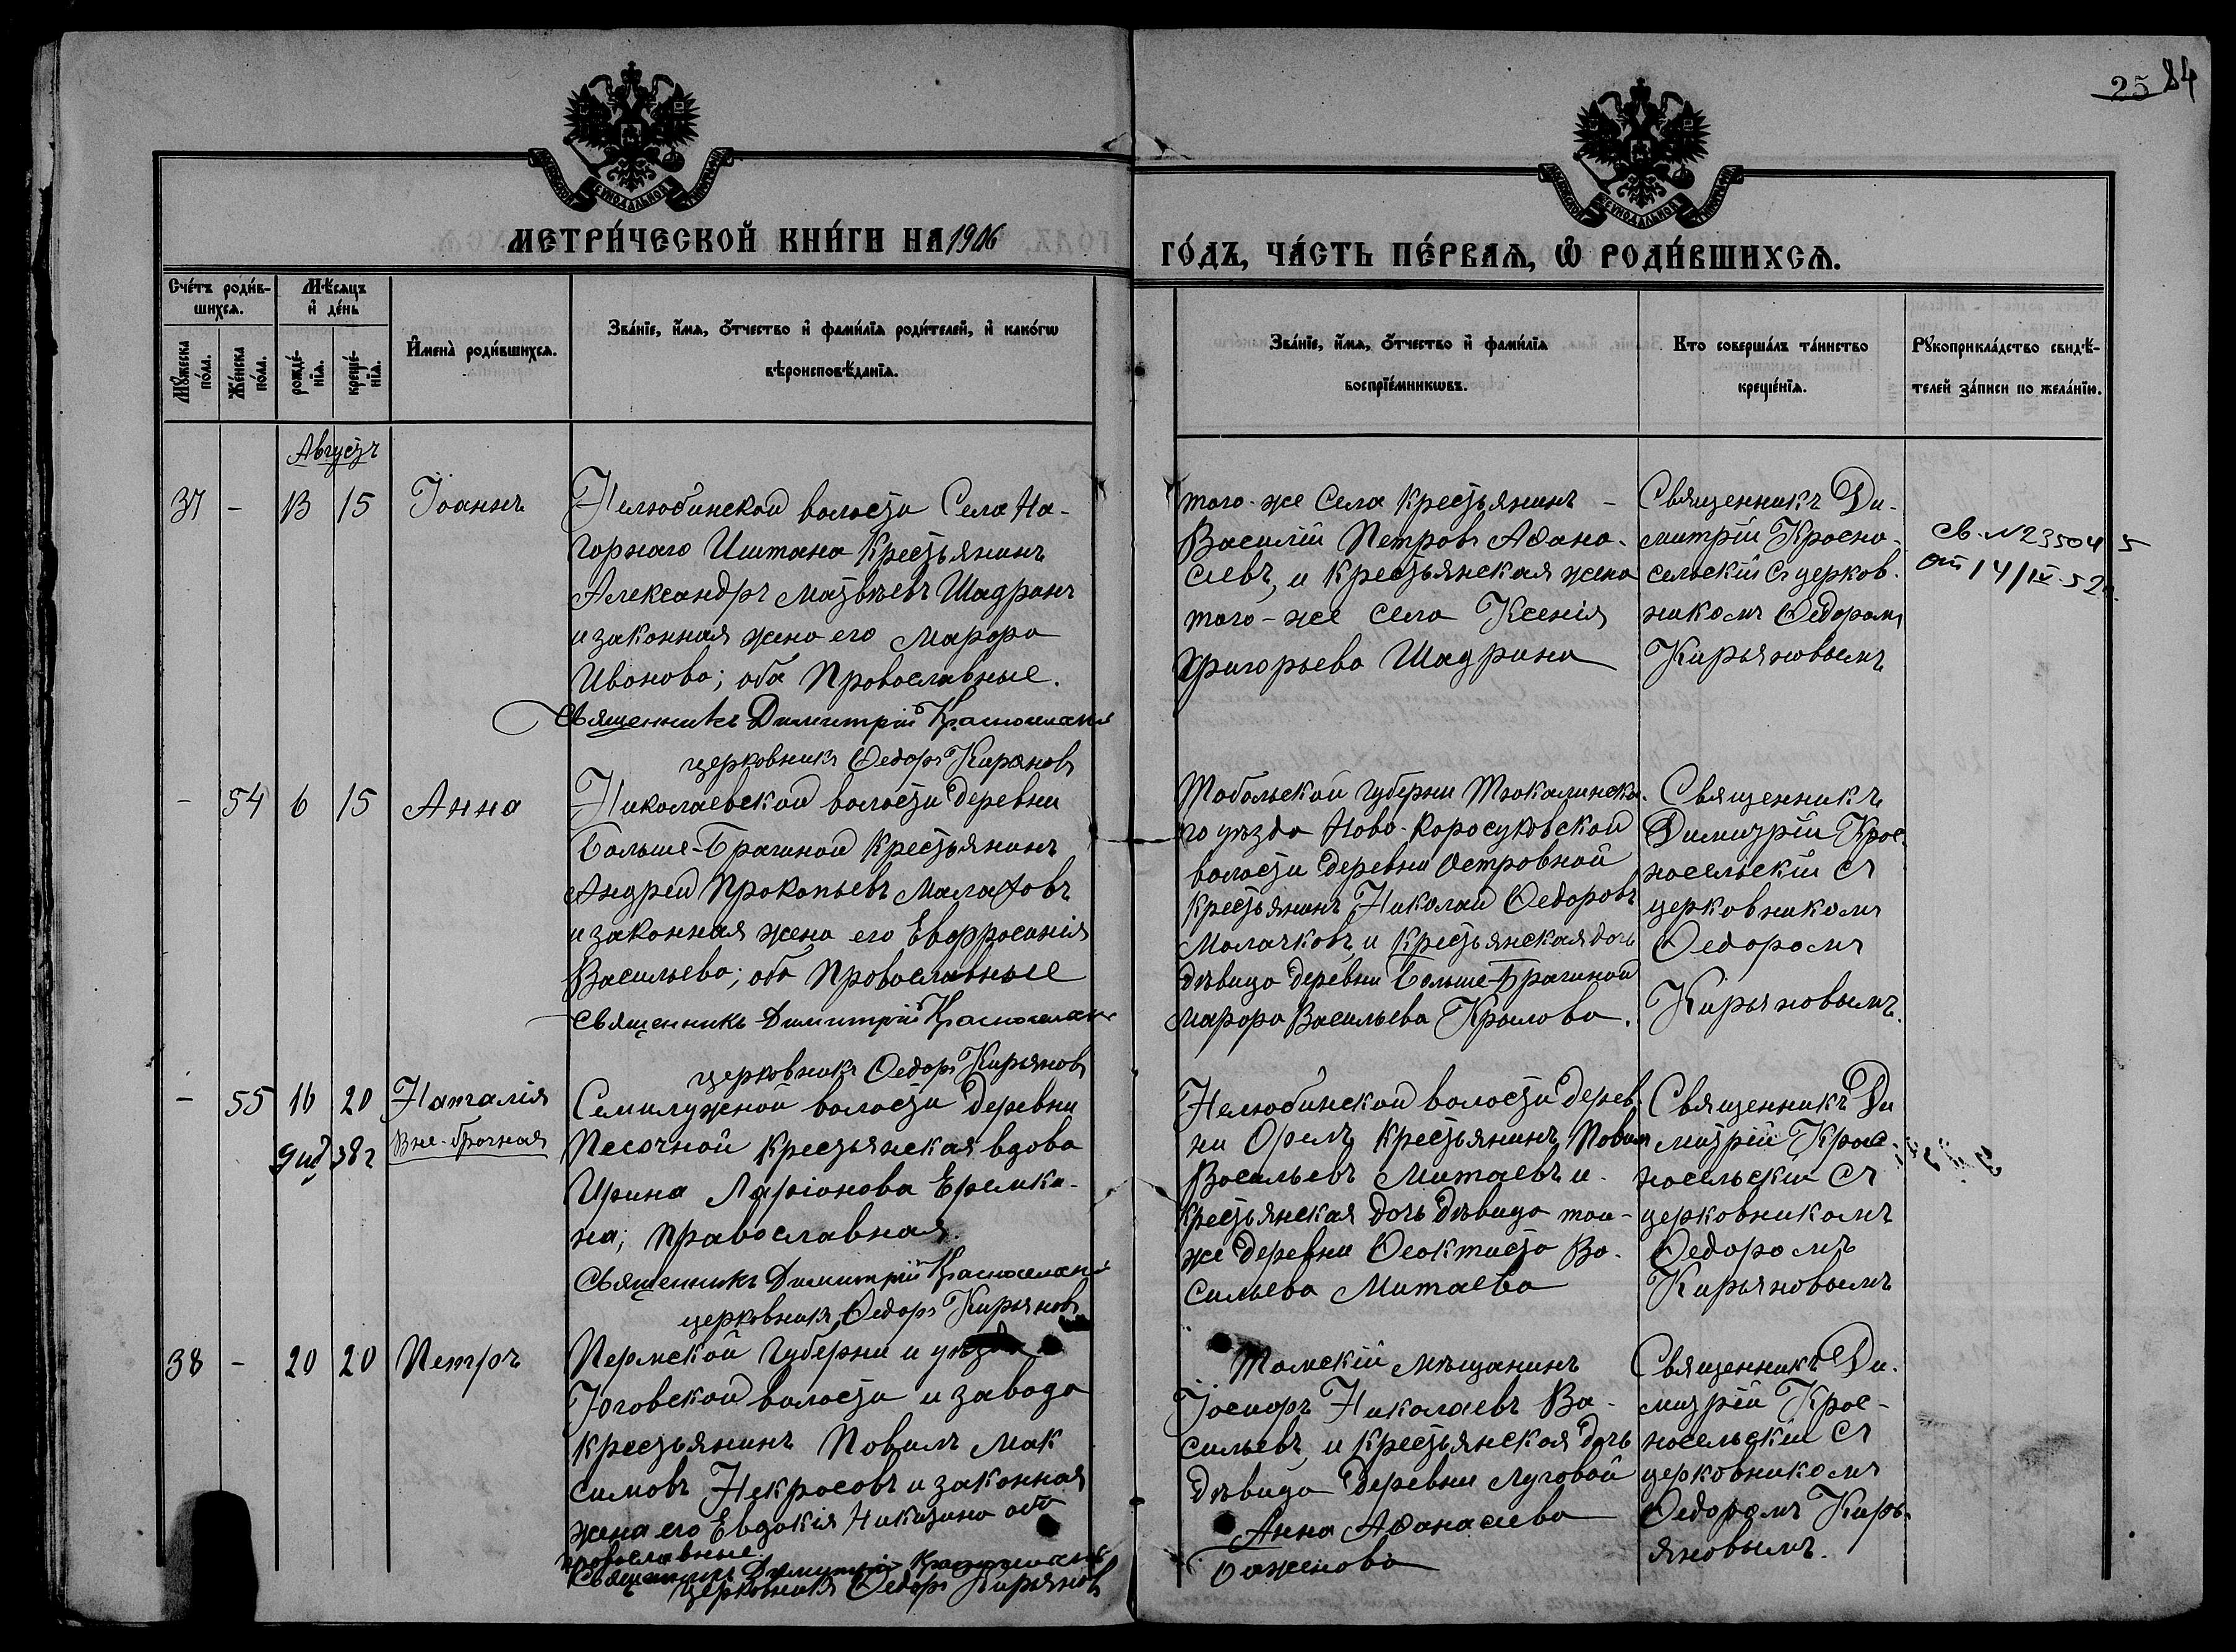 25 84
МЕТРИ́ЧЕСКОЙ КНИ́ГИ НА 1906
ГО́ДЪ, ЧА́СТЬ ПЕ́РВАЯ, Ѡ РОДИ́ВШИХСЯ.
Сче́тъ роди́в-
шихся.
Мѣсяцъ
и де́нь
Мꙋ́жеска
по́ла.
Же́нска
по́ла.
рожде́-
нія.
креще́-
нія.
Имена̀ роди́вшихся.
Зва́ніе, и́мя, ѻ҆́тчество и фами́лія роди́телей, и како́гѡ
вѣроисповѣ́данія.
Зва́ніе, и́мя, ѻ҆́тчество и фами́лія
воспріе́мникѡвъ.
Кто соверша́лъ та́инство
креще́нія.
Рꙋкоприкла́дство свидѣ́-
телей за́писи по жела́нію.
Августъ
37 - 13 15 Іоаннъ
Нелюбинской волости Села На-
горнаго Иштана Крестьянинъ
Александръ Матвѣевъ Шадринъ
и законная жена его Марфа
Иванова; оба Православные.
Священникъ Димитрій Красносельскій
церковникъ Ѳедоръ Кирьяновъ
того-же Села Крестьянинъ -
Василій Петровъ Аѳана-
сьевъ, и Крестьянская жена
того-же села Ксенія
Григорьева Шадрина
Священникъ Ди-
митрій Красно-
сельскій съ церков-
никомъ Ѳедоромъ
Кирьяновымъ
св. №235045
от 14/IX-52г.
- 54 6 15 Анна
Николаевской волости деревни
Больше-Брагиной Крестьянинъ
Андрей Прокопьевъ Малаховъ
и законная жена его Евфросинія
Васильева; оба Православные
Священникъ Димитрій Красносельскій
церковникъ Ѳедоръ Кирьяновъ
Тобольской губерни Тюкалинска-
го уѣзда Ново-Карасукской
волости деревни Островной
Крестьянинъ Николай Ѳедоровъ
Молачковъ, и Крестьянская дочь
дѣвица деревни Больше-Брагиной
Марфа Васильева Крылова.
Священникъ
Димитрій Крас-
носельскій съ
церковникомъ
Ѳедоромъ
Кирьяновымъ.
- 55 16 20 Наталія
Вне-брачная
Семилужной волости деревни
Песочной Крестьянская вдова
Ирина Ларіонова Еремки-
на; Православная.
Священникъ Димитрій Красносельскій
церковникъ Ѳедоръ Кирьяновъ
Нелюбинской волости дерев-
ни Орелъ Крестьянинъ Павелъ
Васильевъ Митаевъ и
Крестьянская дочь дѣвица той-
же деревни Ѳеоктиста Ва-
сильева Митаева
Священникъ Ди
митрій Крас-
носельскій съ
церковникомъ
Ѳедоромъ
Кирьяновымъ
38 - 20 20 Петръ
Пермской губерни и уѣзда
Юговской волости и завода
Крестьянинъ Павелъ Мак
симовъ Некрасовъ и законная
жена его Евдокія Никитина оба
православные.
Священникъ Димитрій Красносельскій
церковникъ Ѳедоръ Кирьяновъ
Томскій мѣщанинъ
Іосифъ Николаевъ Ва-
сильевъ, и Крестьянская дочь
дѣвица деревни Луговой
Анна Аѳанасіева
Баженова
Священникъ Ди-
митрій Крас-
носельскій съ
церковникомъ
Ѳедоромъ Кирь-
яновымъ.